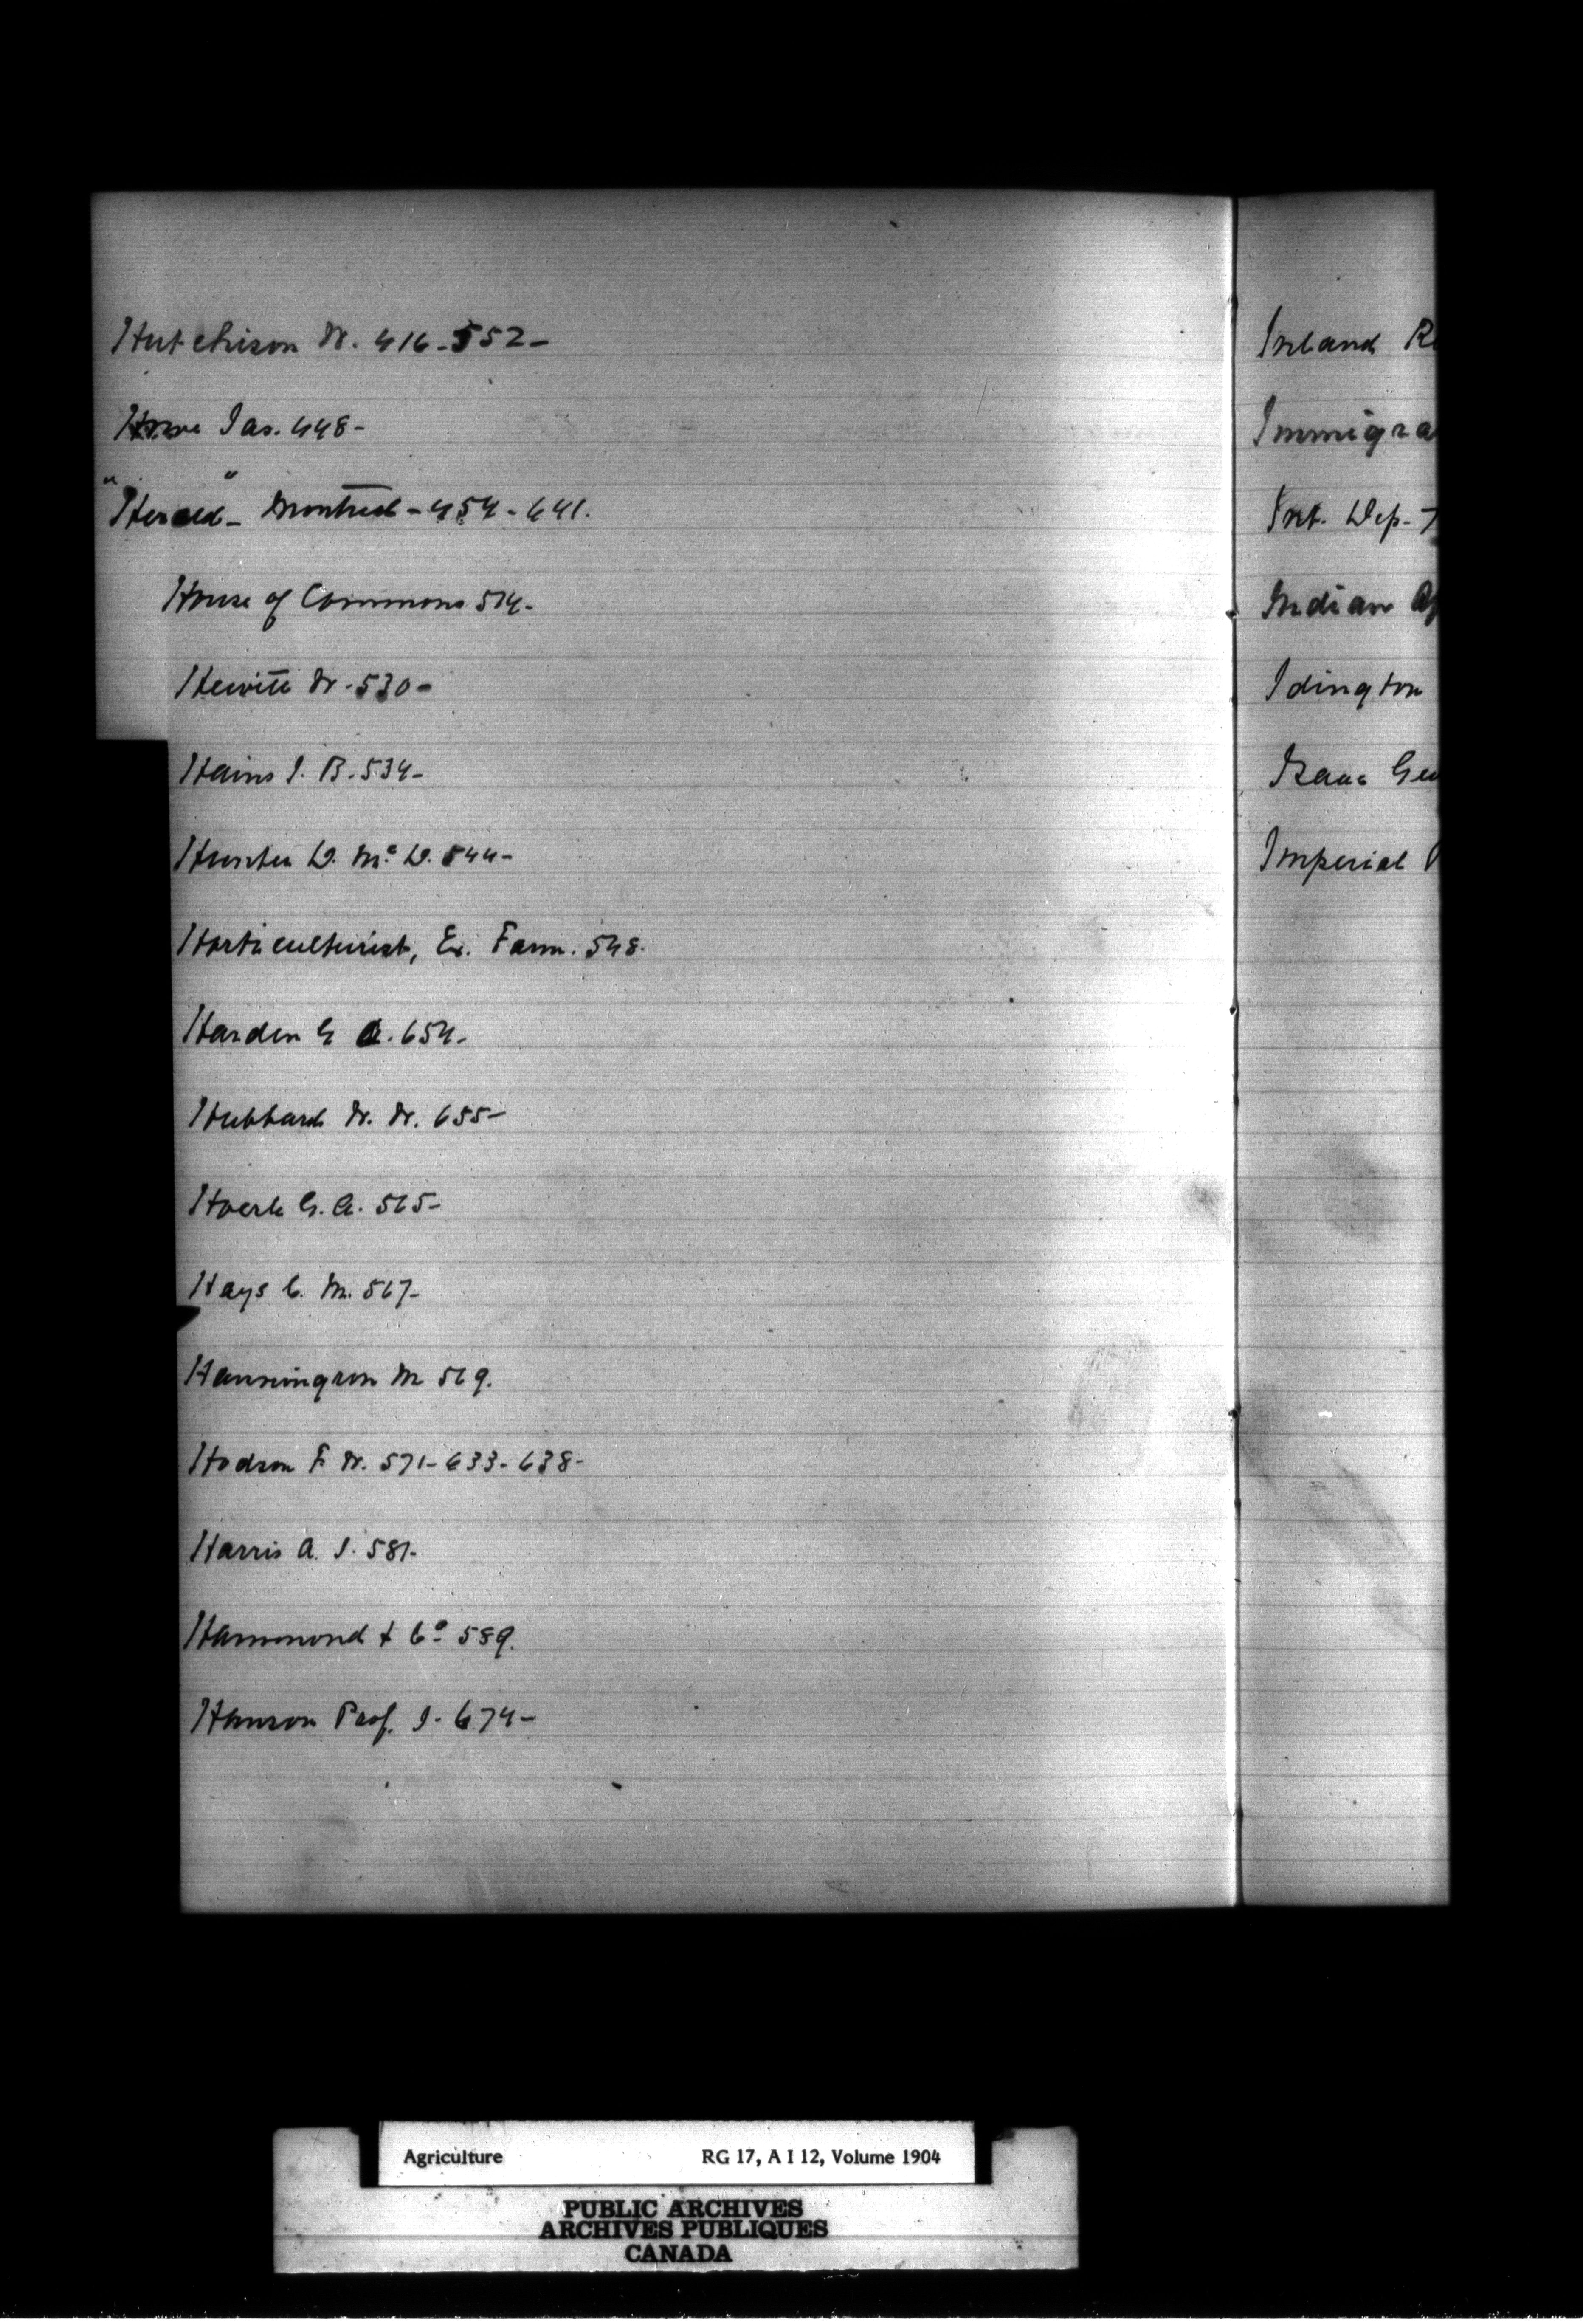 Hutchison W. 416-552-
Howe Jas. 448-
"Herald" - Montreal - 454 - 641.
House of Commons 514-
Hewitt W. 530-
Hains J. B. 534-
Hunter D. Mc D. 544-
Horticulturist, Ex. Farm. 548.
Harden G A. 654-
Hubbard W. W. 655-
G. A. 565-
Hays C. M. 567-
Hannington M 569.
Hodson F W. 571-633-638-
Harris A. J. 581-
Hammond & Co 589.
Prof. J. 674-
Ireland
Immigra
Int. Dep.
Indian
Idington
Isaac Geo
Imperial
Agriculture RG 17, A I 12, Volume 1904
PUBLIC ARCHIVES
ARCHIVES PUBLIQUES
CANADA